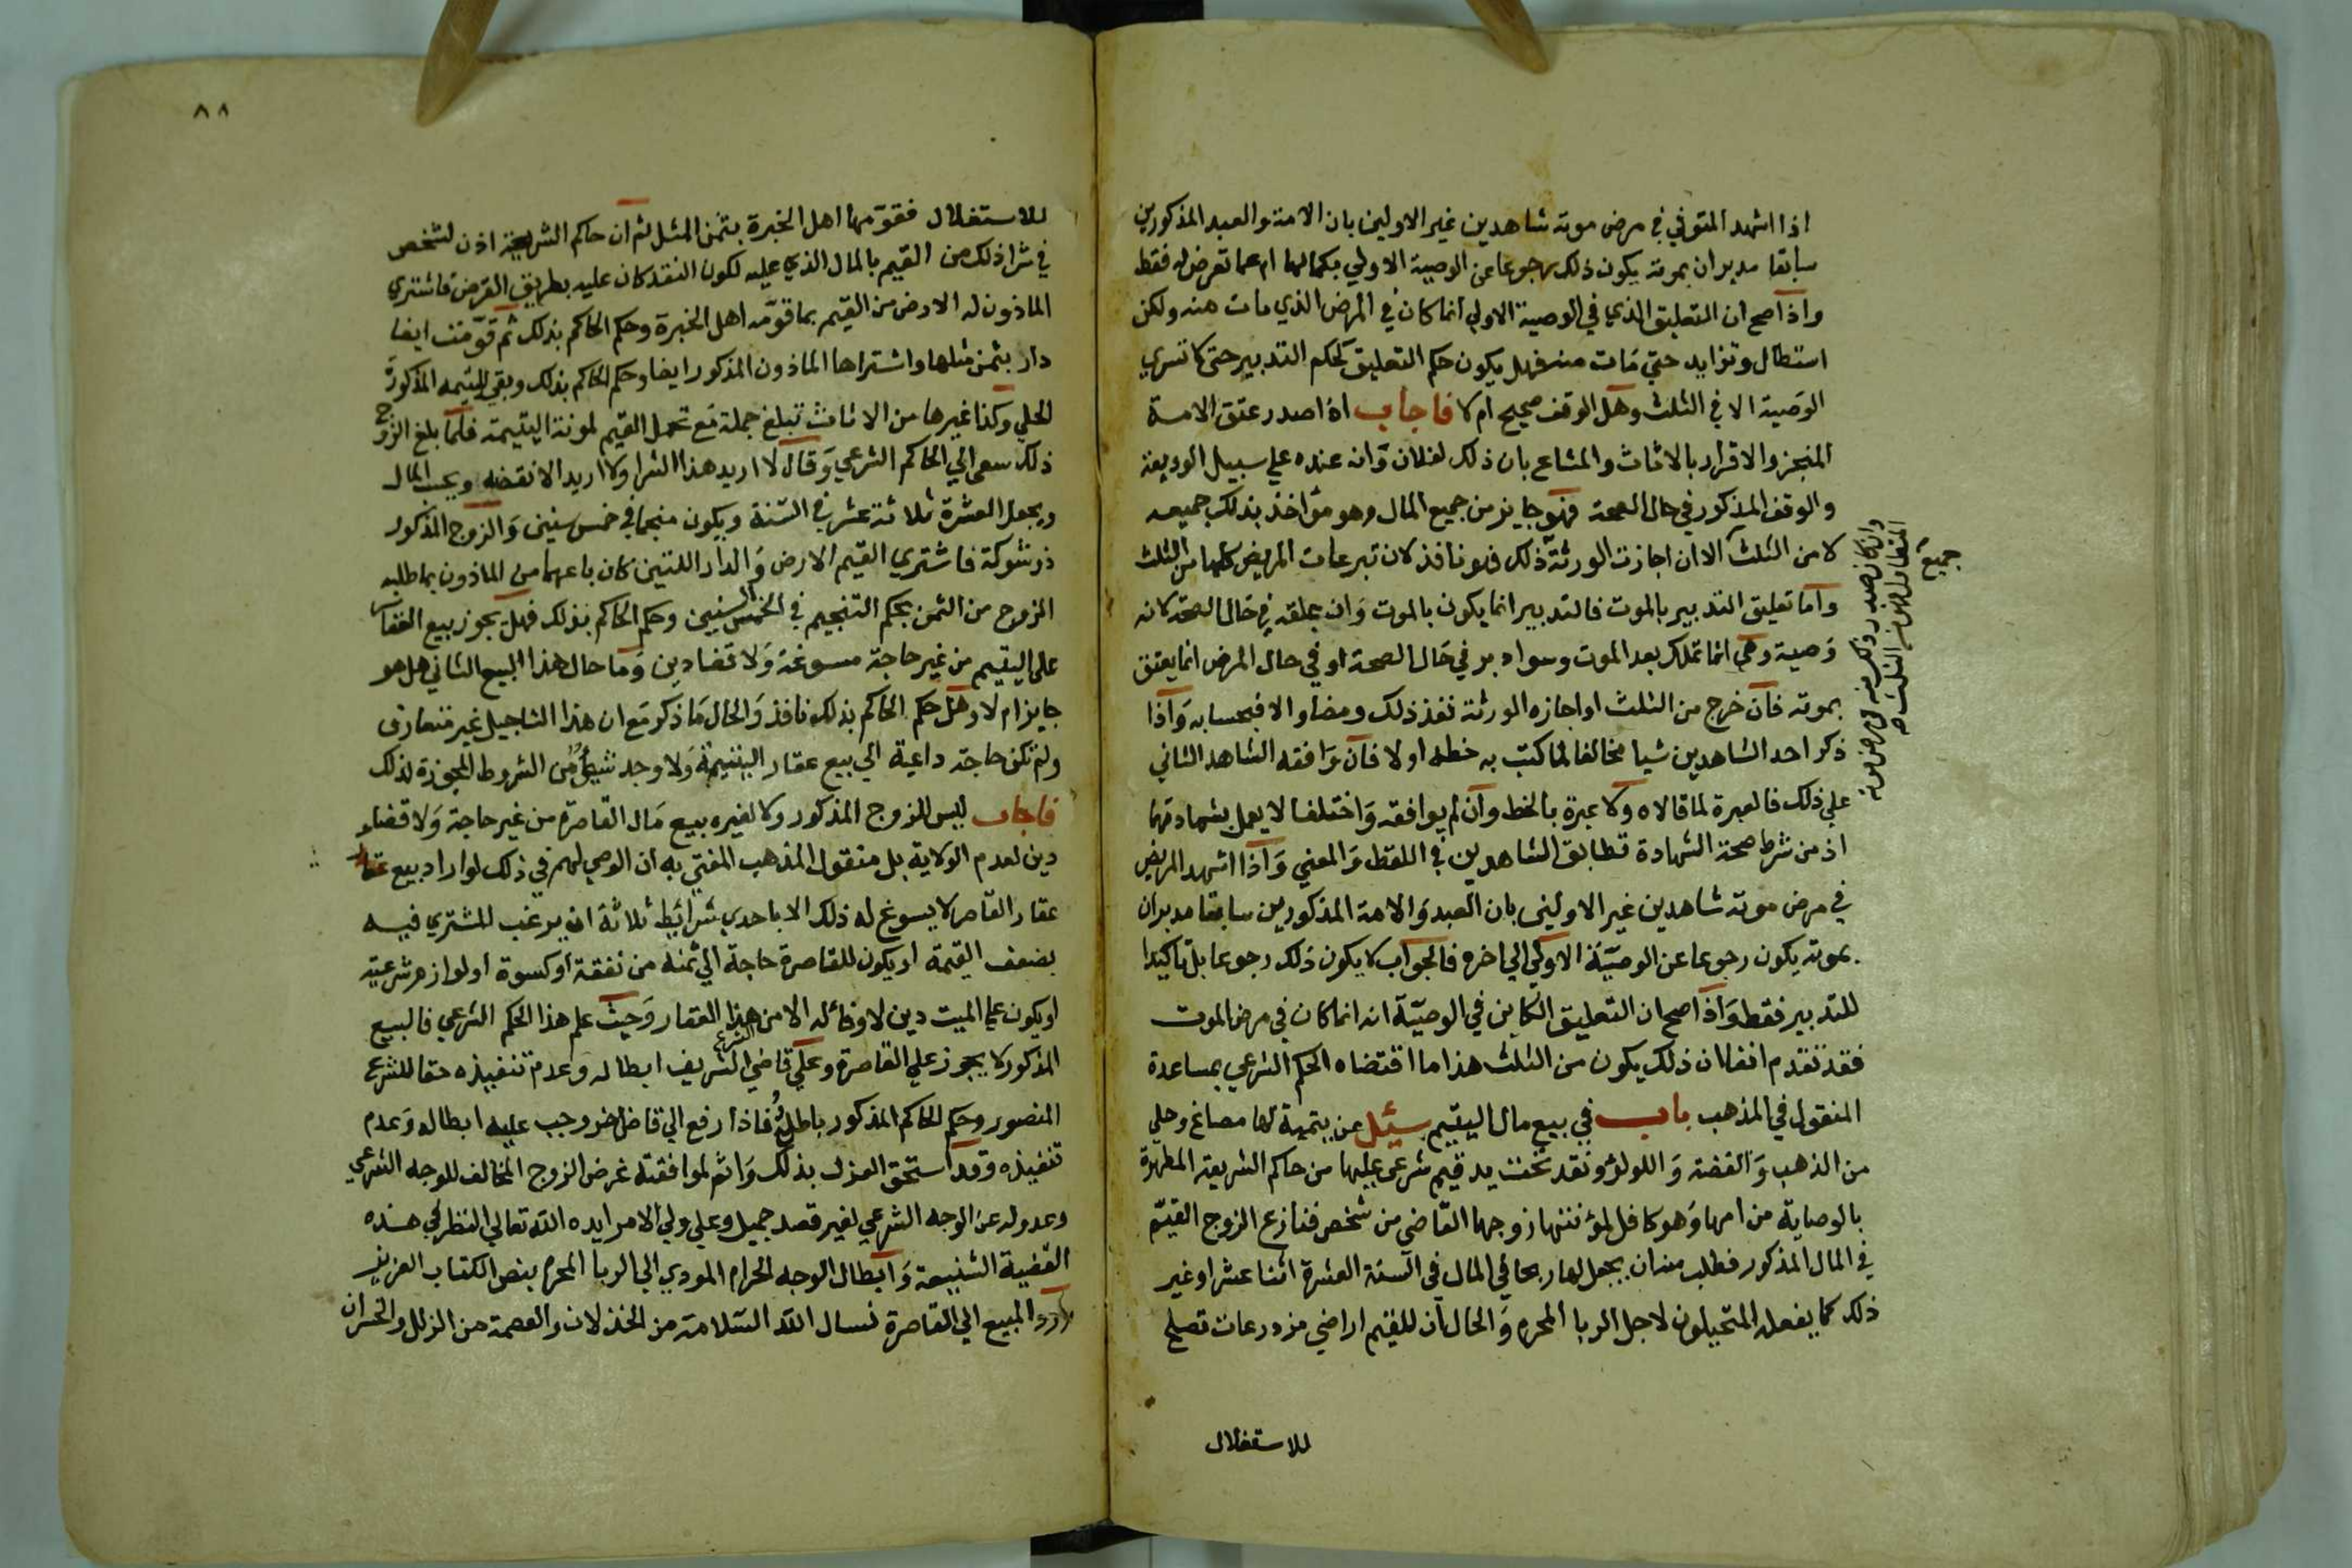 اذا اشهد المتوفي في مرض موته شاهدين غير الاولين بان الامة والعبد المذكورين
سابقا مدبران بموته يكون ذلك رجوعا عن الوصية الاولي بكمالها ام عما تعرض له فقط
واذا صح ان التعليق الذي في الوصية الاولي انما كان في المرض الذي مات منه ولكن
استطال وتزايد حتي مات منه فهل يكون حكم التعليق كحكم التدبير حتى لا تسري
الوصية الا في الثلث وهل الوقف صحيح ام لا فاجاب اذا صدر عتق الامة
المنجز والاقرار بالاثاث والمشاع بان ذلك لفلان وانه عنده علي سبيل الوديعة
والوقف المذكور في حال الصحة فهو جايز من جميع المال وهو مؤاخذ بذلك جميعه
لا من الثلث الا ان اجازت الورثة ذلك فهو نافذ لان تبرعات المريض كلها من الثلث
واما تعليق التدبير بالموت فالتدبير انما يكون بالموت وان علقه في حال الصحة لانه
وصية وهي انما تملك بعد الموت وسوا دبر في حال الصحة او في حال المرض انما يعتق
بموته فان خرج من الثلث او اجازه الورثة نفذ ذلك ومضا والا فبحسابه واذا
ذكر احد الشاهدين شيا مخالفا لما كتب به خطه اولا فان وافقه الشاهد الثاني
علي ذلك فالعبرة لما قالاه ولا عبرة بالخط وان لم يوافقه واختلفا لا يعمل بشهادتهما
اذ من شرط صحة الشهادة تطابق الشاهدين في اللفظ والمعني واذا اشهد المريض
في مرض موته شاهدين غير الاولين بان العبد والامة المذكورين سابقا مدبران
بموته يكون رجوعا عن الوصية الاولي الي اخره فالجواب لا يكون ذلك رجوعا بل تاكيدا
للتدبير فقط واذا صح ان التعليق الكاين في الوصية انه انما كان في مرض الموت
فقد تقدم انفا ان ذلك يكون من الثلث هذا ما اقتضاه الحكم الشرعي بمساعدة
المنقول في المذهب باب في بيع مال اليتيم سئل عن يتيمة لها مصاغ وحلي
من الذهب والفضة واللولؤ ونقد تحت يد قيم شرعي عليها من حاكم الشريعة المطهرة
بالوصاية من امها وهو كافل لمؤنتها زوجها القاضي من شخص فنازع الزوج القيم
في المال المذكور فطلب منه ان يجعل لها ربحا في المال في السنة العشرة اثنا عشر او غير
ذلك كما يفعله المتحيلون لاجل الربا المحرم والحال ان للقيم اراضي مزدرعات تصلح
للاستغلال
وان كان صدر ذلك منه في مرض موته
جميع
٨٨
للاستغلال فقومها اهل الخبرة بثمن المثل ثم ان حاكم الشريعة اذن لشخص
في شرا ذلك من القيم بالمال الذي عليه لكون النقد كان عليه بطريق القرض فاشتري
الماذون له الارض من القيم بما قومه اهل الخبرة وحكم الحاكم بذلك ثم قومت ايضا
دار بثمن مثلها واشتراها الماذون المذكور ايضا وحكم الحاكم بذلك وبقي لليتيمه المذكورة
الحلي وكذا غيرها من الاثاث تبلغ جملة مع تحمل القيم لمونة اليتيمة فلما بلغ الزوج
ذلك سعى الي الحاكم الشرعي وقال لا اريد هذا الشرا ولا اريد الا نقضه المال
ويجعل العشرة ثلاثة عشر في السنة ويكون منجما في خمس سنين والزوج المذكور
ذو شوكة فاشتري القيم الارض والدار اللتين كان باعهما من الماذون بما طلبه
المزوج من الثمن بحكم التنجيم في الخمس السنين وحكم الحاكم بذلك فهل يجوز بيع العقار
على اليتيم من غير حاجة مسوغة ولا قضا دين وما حال هذا البيع الثاني هل هو
جايز ام لا وهل حكم الحاكم بذلك نافذ والحال ما ذكر مع ان هذا التاجيل غير متعارف
ولم تكن حاجة داعية الي بيع عقار اليتيمة ولا وجد شيئ من الشروط المجوزة لذلك
فاجاب ليس للزوج المذكور ولا لغيره بيع مال القاصرة من غير حاجة ولا قضاء
دين لعدم الولاية بل منقول المذهب المفتي به ان الوصي لهم في ذلك لو اراد بيع
عقار القاصر لا يسوغ له ذلك الا باحدي شرايط ثلاثة ان يرغب المشتري فيه
بضعف القيمة او يكون للقاصرة حاجة الي ثمنه من نفقة او كسوة او لوازم شرعية
او يكون علي الميت دين لا وفائه الا من هذا العقار وحيث علم هذا الحكم الشرعي فالبيع
المذكور لا يجوز علي القاصرة وعلي قاضي الشرع الشريف ابطاله وعدم تنفيذه حقا للشرع
المنصور وحكم الحاكم المذكور باطل فاذا رفع الي قاض اخر وجب عليه ابطاله وعدم
تنفيذه وقد استحق العزل بذلك واثم لموافقته غرض الزوج المخالف للوجه الشرعي
وعدوله عن الوجه الشرعي لغير قصد جميل وعلي ولي الامر ايده الله تعالي النظر في هذه
القضية الشنيعة وابطال الوجه الحرام المودي الي الربا المحرم بنص الكتاب العزيز
ورد المبيع الي القاصرة نسال الله السلامة من الخذلان والعصمة من الزلل والخسران